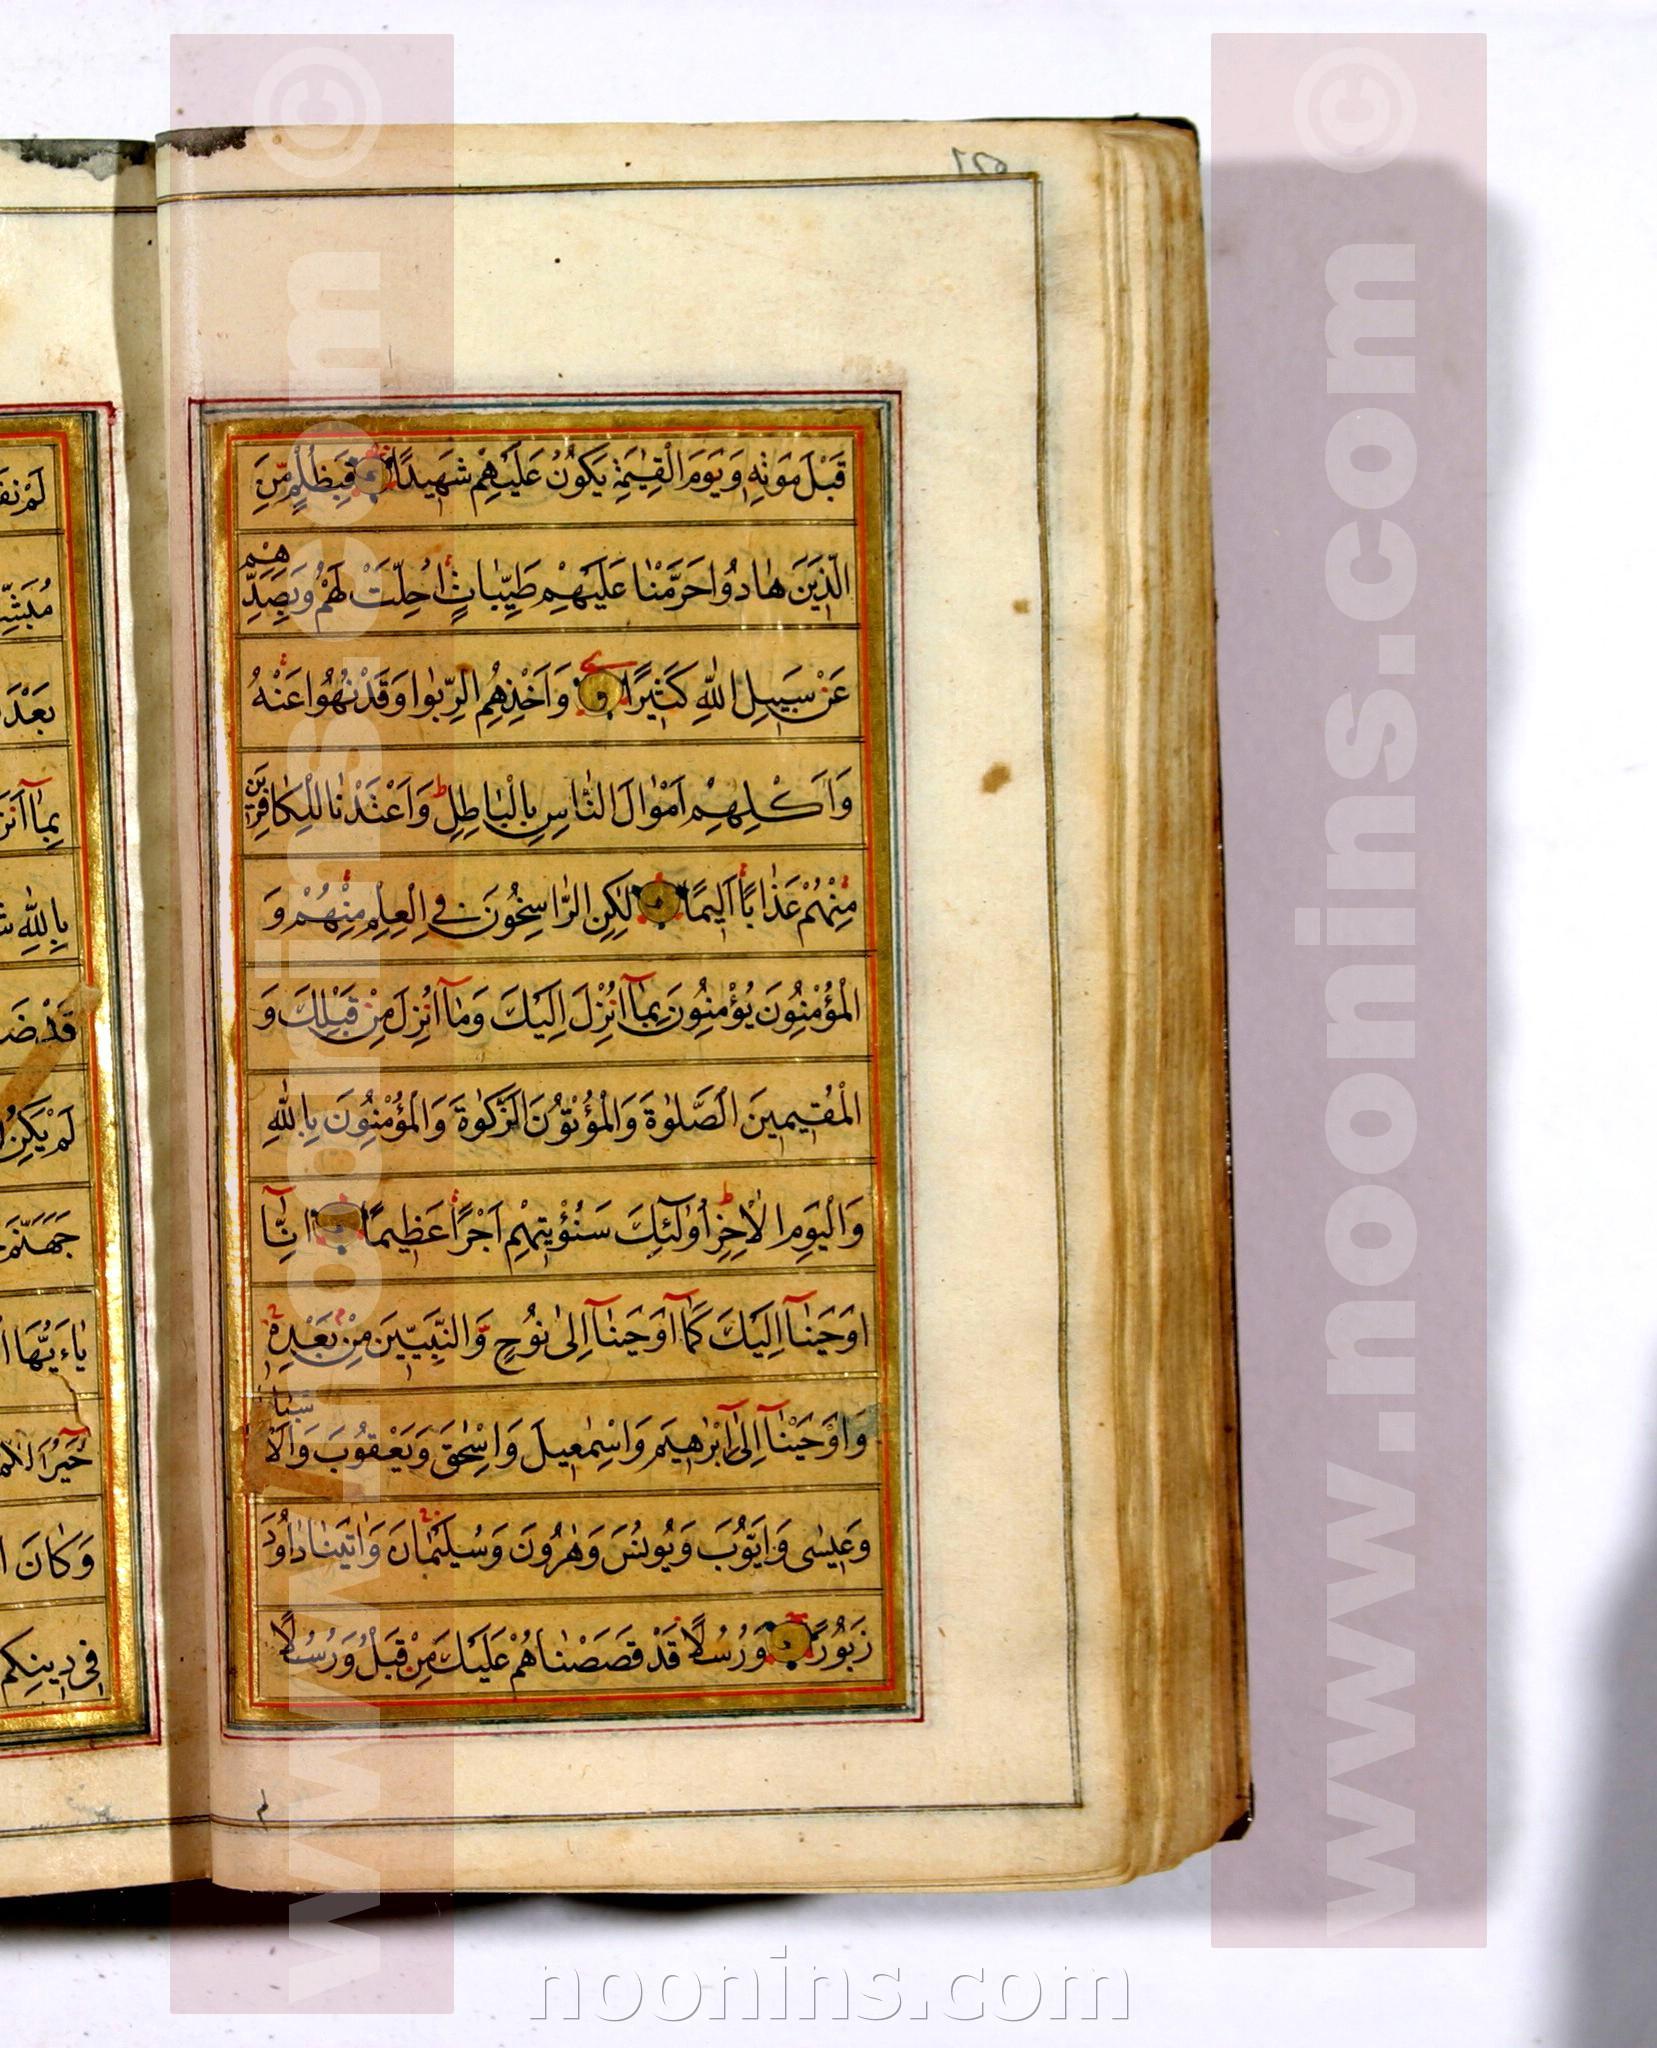 قَبْلَ مَوْتِهِ وَيَوْمَ الْقِيٰمَةِ يَكُونُ عَلَيْهِمْ شَهِيدًا فَبِظُلْمٍ مِنَ
الَّذِينَ هٰادُوا حَرَّمْنٰا عَلَيْهِمْ طَيِّبٰاتٍ اُحِلَّتْ لَهُمْ وَبِصَدِّهِمْ
عَنْ سَبِيلِ اللهِ كَثِيرًا وَاَخْذِهِمُ الرِّبٰوا وَقَدْ نُهُوا عَنْهُ
وَاَكْلِهِمْ اَمْوٰالَ النّٰاسِ بِالْبٰاطِلِ وَاَعْتَدْنٰا لِلْكٰافِرِينَ
مِنْهُمْ عَذٰابًا اَلِيمًا لٰكِنِ الرّٰاسِخُونَ فِي الْعِلْمِ مِنْهُمْ وَ
الْمُؤْمِنُونَ يُؤْمِنُونَ بِمٰآ اُنْزِلَ اِلَيْكَ وَمٰآ اُنْزِلَ مِنْ قَبْلِكَ وَ
الْمُقِيمِينَ الصَّلٰوةَ وَالْمُؤْتُونَ الزَّكٰوةَ وَالْمُؤْمِنُونَ بِاللهِ
وَالْيَوْمِ الْاٰخِرِ اُولٰٓئِكَ سَنُؤْتِيهِمْ اَجْرًا عَظِيمًا اِنّٰآ
اَوْحَيْنٰآ اِلَيْكَ كَمٰآ اَوْحَيْنٰآ اِلىٰ نُوحٍ وَالنَّبِيِّينَ مِنْ بَعْدِهِ
وَاَوْحَيْنٰآ اِلىٰٓ اِبْرٰهِيمَ وَاِسْمٰعِيلَ وَاِسْحٰقَ وَيَعْقُوبَ وَالْاَسْبٰاطِ
وَعِيسٰى وَاَيُّوبَ وَيُونُسَ وَهٰرُونَ وَسُلَيْمٰانَ وَاٰتَيْنٰا دٰاوُدَ
زَبُورًا وَرُسُلًا قَدْ قَصَصْنٰاهُمْ عَلَيْكَ مِنْ قَبْلُ وَرُسُلًا
بِمٰآ
بِاللهِ
لَمْ يَكُنِ
جَهَنَّمَ
يٰآءَيُّهَا
وَكٰانَ
فِي دِينِكُمْ
www.noonins.com ©
www.noonins.com ©
noonins.com